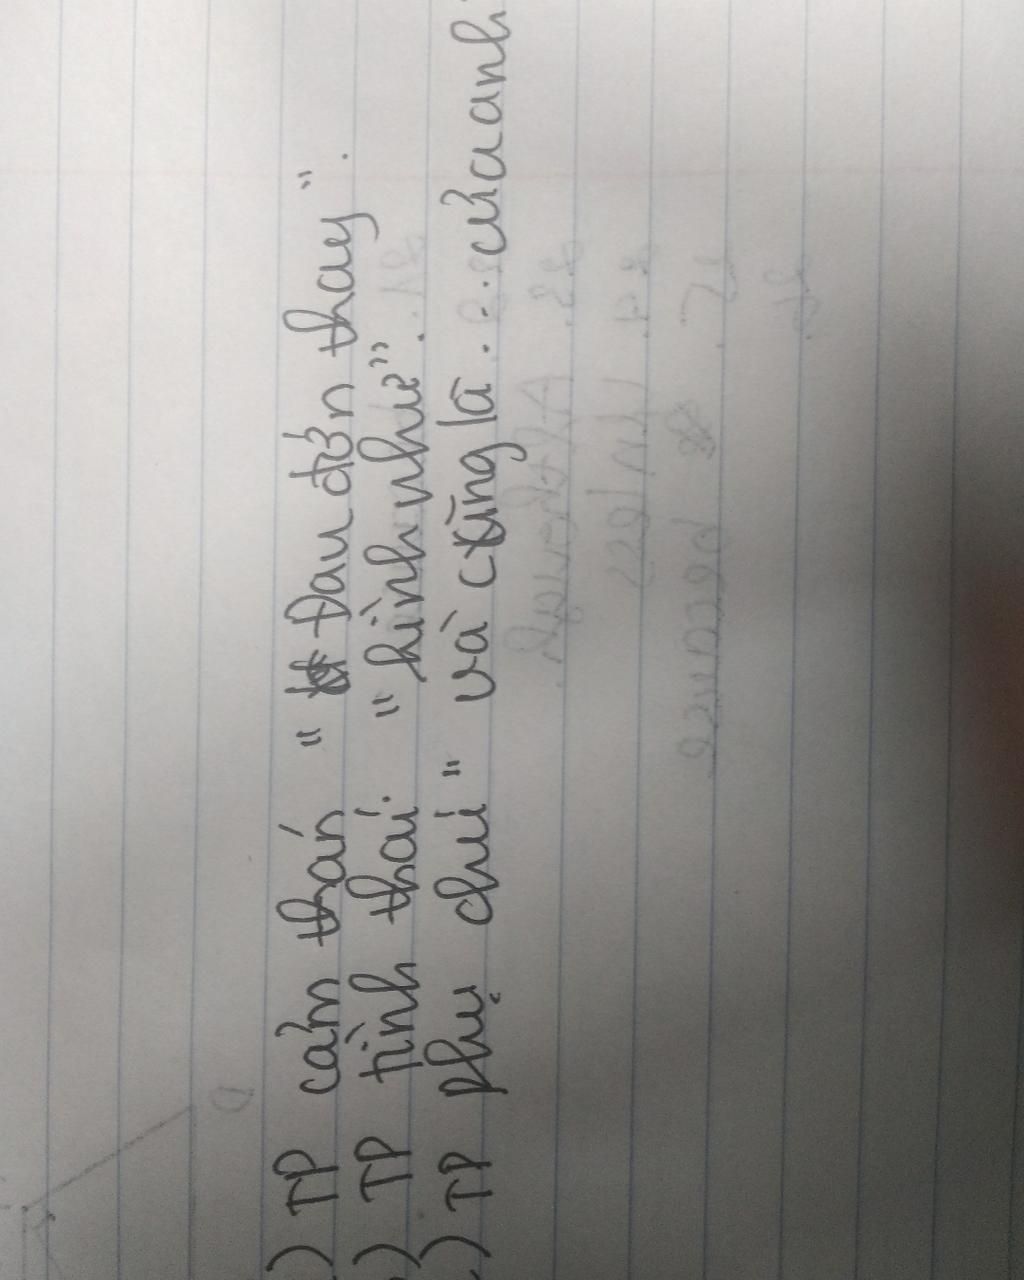 ) TP cảm thán " Đau đớn thay".
) TP tình thái. " hình như".
) TP phụ chú " và cũng là... của anh